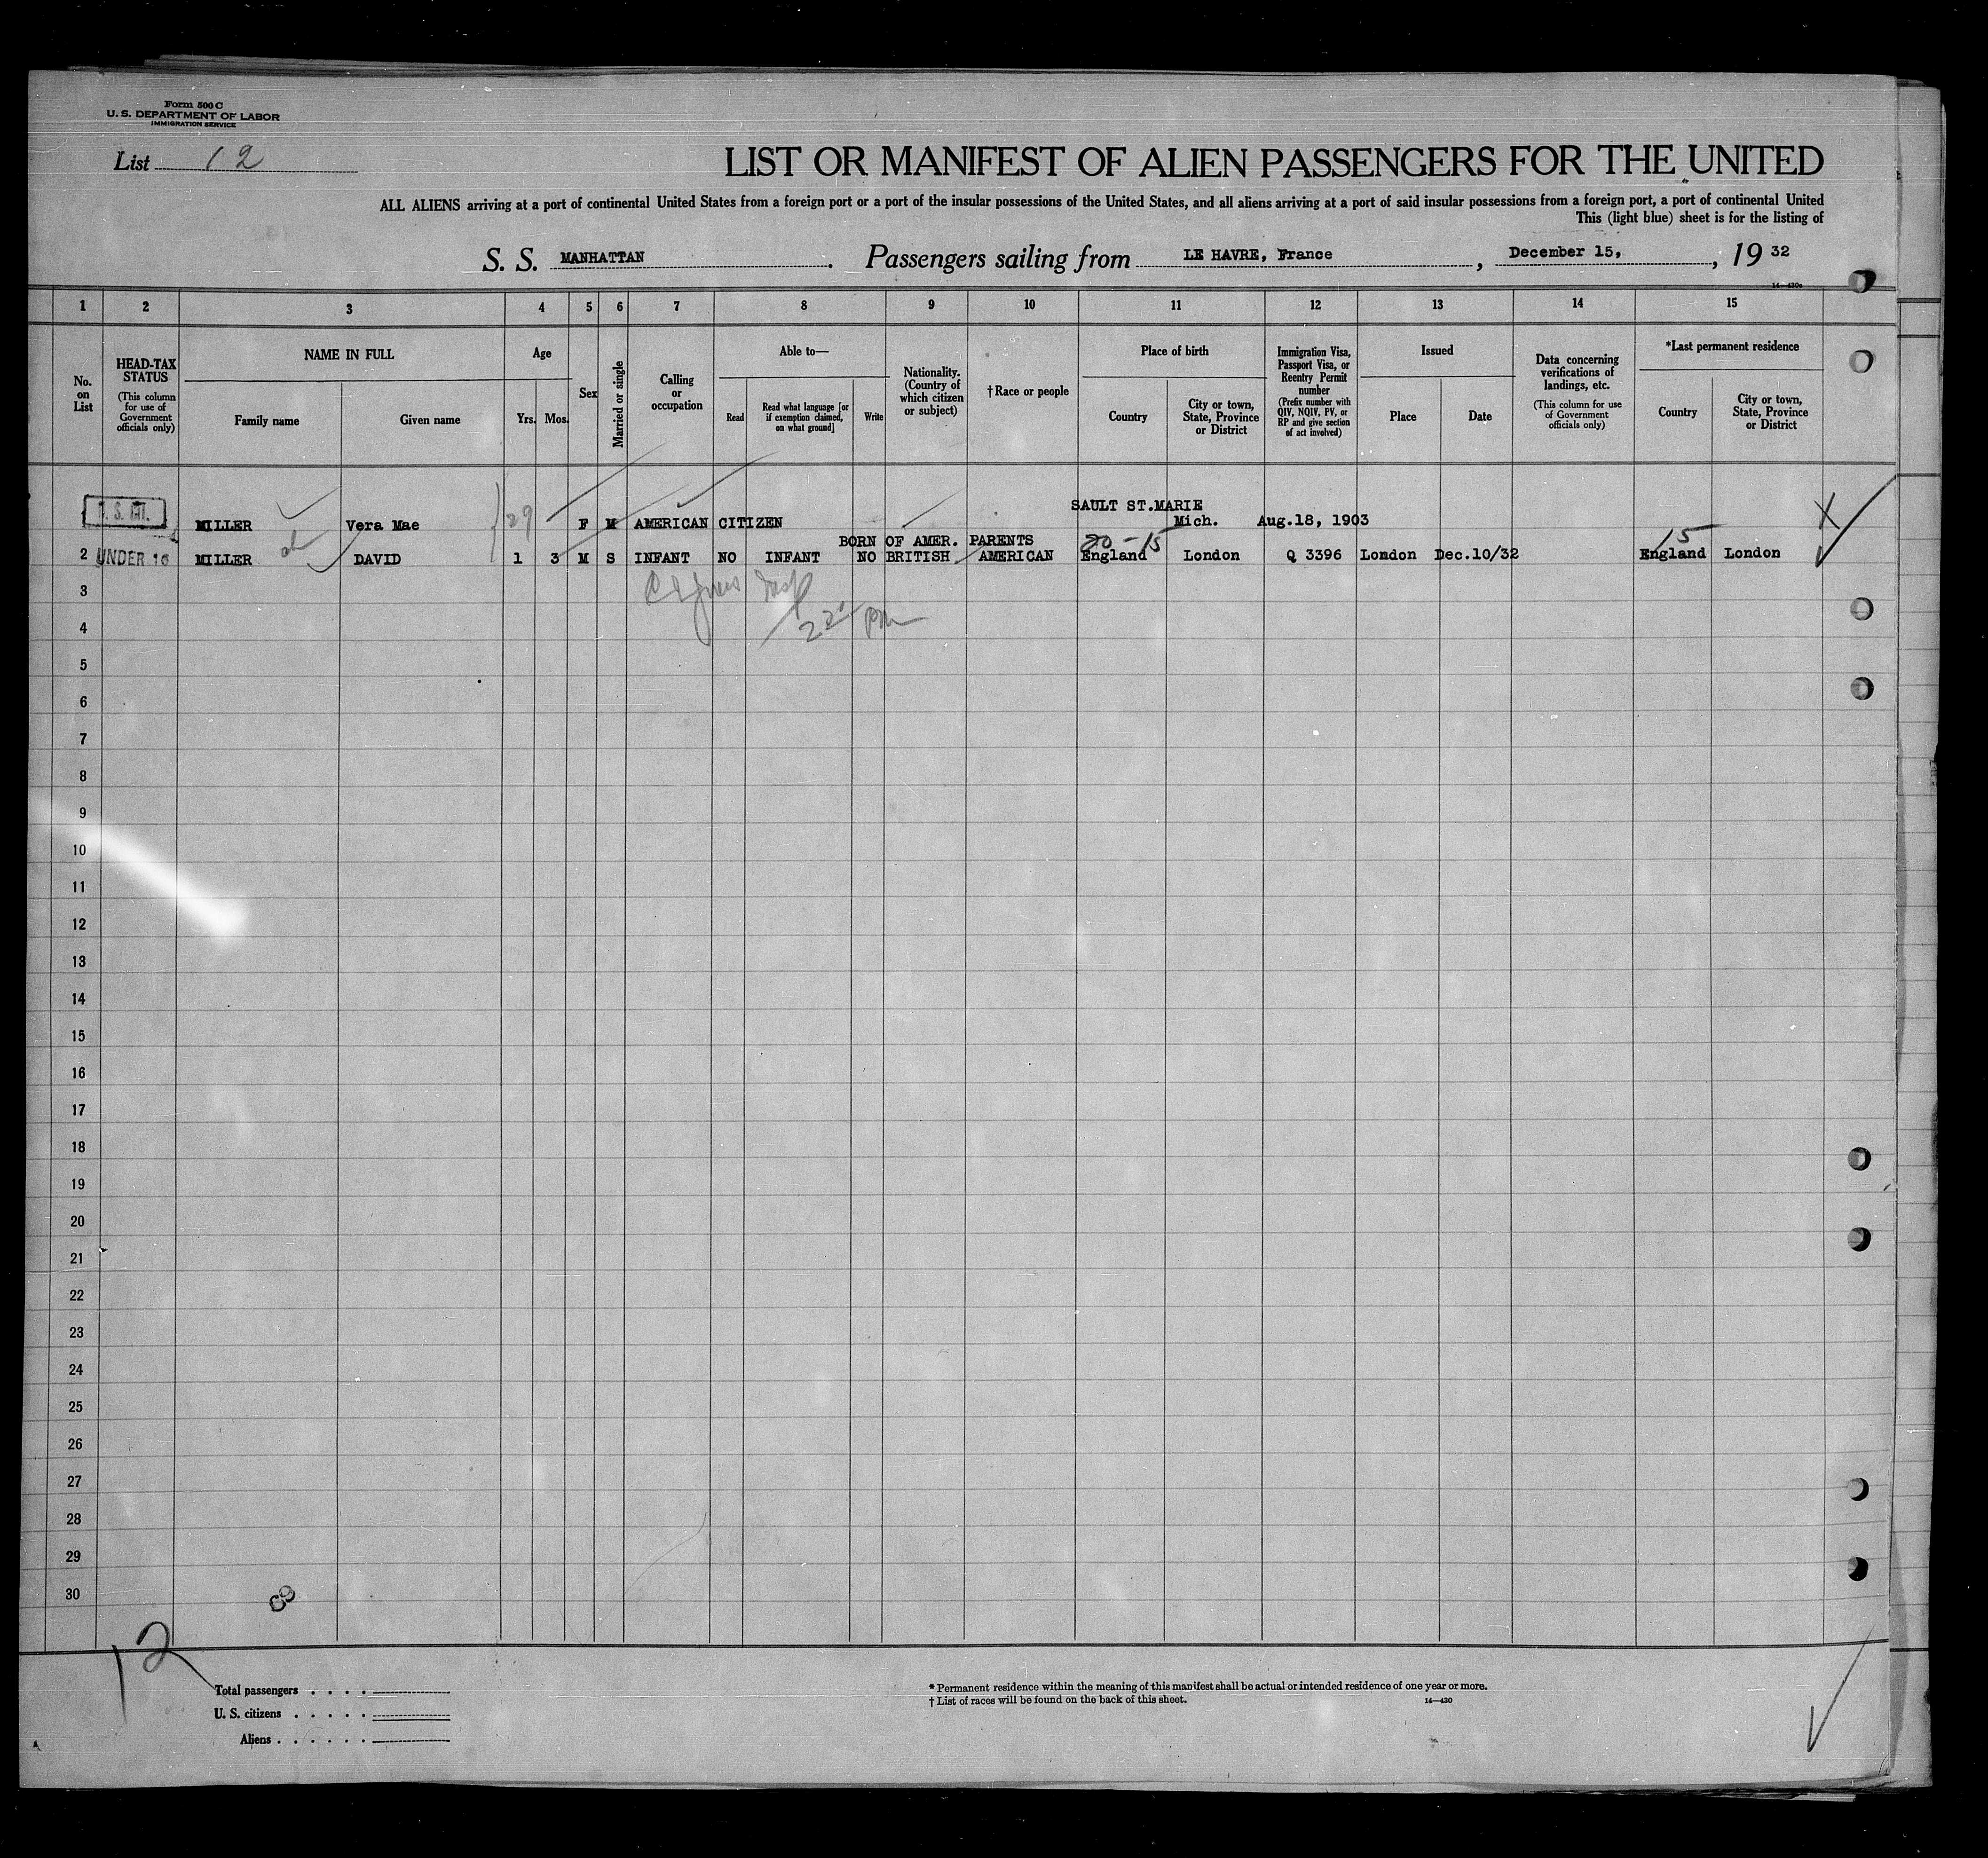 Form 500 C
U. S. DEPARTMENT OF LABOR
IMMIGRATION SERVICE
List 12
LIST OR MANIFEST OF ALIEN PASSENGERS FOR THE UNITED
ALL ALIENS arriving at a port of continental United States from a foreign port or a port of the insular possessions of the United States, and all aliens arriving at a port of said insular possessions from a foreign port, a port of continental United
This (light blue) sheet is for the listing of
S. S. MANHATTAN. Passengers sailing from LE HAVRE, France, December 15,, 19 32
14—430a
1 2 3 4 5 6 7 8 9 10 11 12 13 14 15
No. on List
HEAD-TAX STATUS
(This column for use of Government officials only)
NAME IN FULL
Family name
Given name
Age
Yrs. Mos.
Sex
Married or single
Calling or occupation
Able to—
Read
Read what language [or if exemption claimed, on what ground]
Write
Nationality. (Country of which citizen or subject)
†Race or people
Place of birth
Country
City or town, State, Province or District
Immigration Visa, Passport Visa, or Reentry Permit number
(Prefix number with QIV, NQIV, PV, or RP and give section of act involved)
Issued
Place
Date
Data concerning verifications of landings, etc.
(This column for use of Government officials only)
*Last permanent residence
Country
City or town, State, Province or District
SAULT ST.MARIE
MILLER Vera Mae 29 F M AMERICAN CITIZEN Mich. Aug.18, 1903
BORN OF AMER. PARENTS 20-15 15
2 UNDER 16 MILLER DAVID 1 3 M S INFANT NO INFANT NO BRITISH AMERICAN England London Q 3396 London Dec.10/32 England London
3
4
5
6
7
8
9
10
11
12
13
14
15
16
17
18
19
20
21
22
23
24
25
26
27
28
29
30
12
Total passengers . . . .
U. S. citizens . . . . .
Aliens . . . . . .
* Permanent residence within the meaning of this manifest shall be actual or intended residence of one year or more.
† List of races will be found on the back of this sheet.
14—430